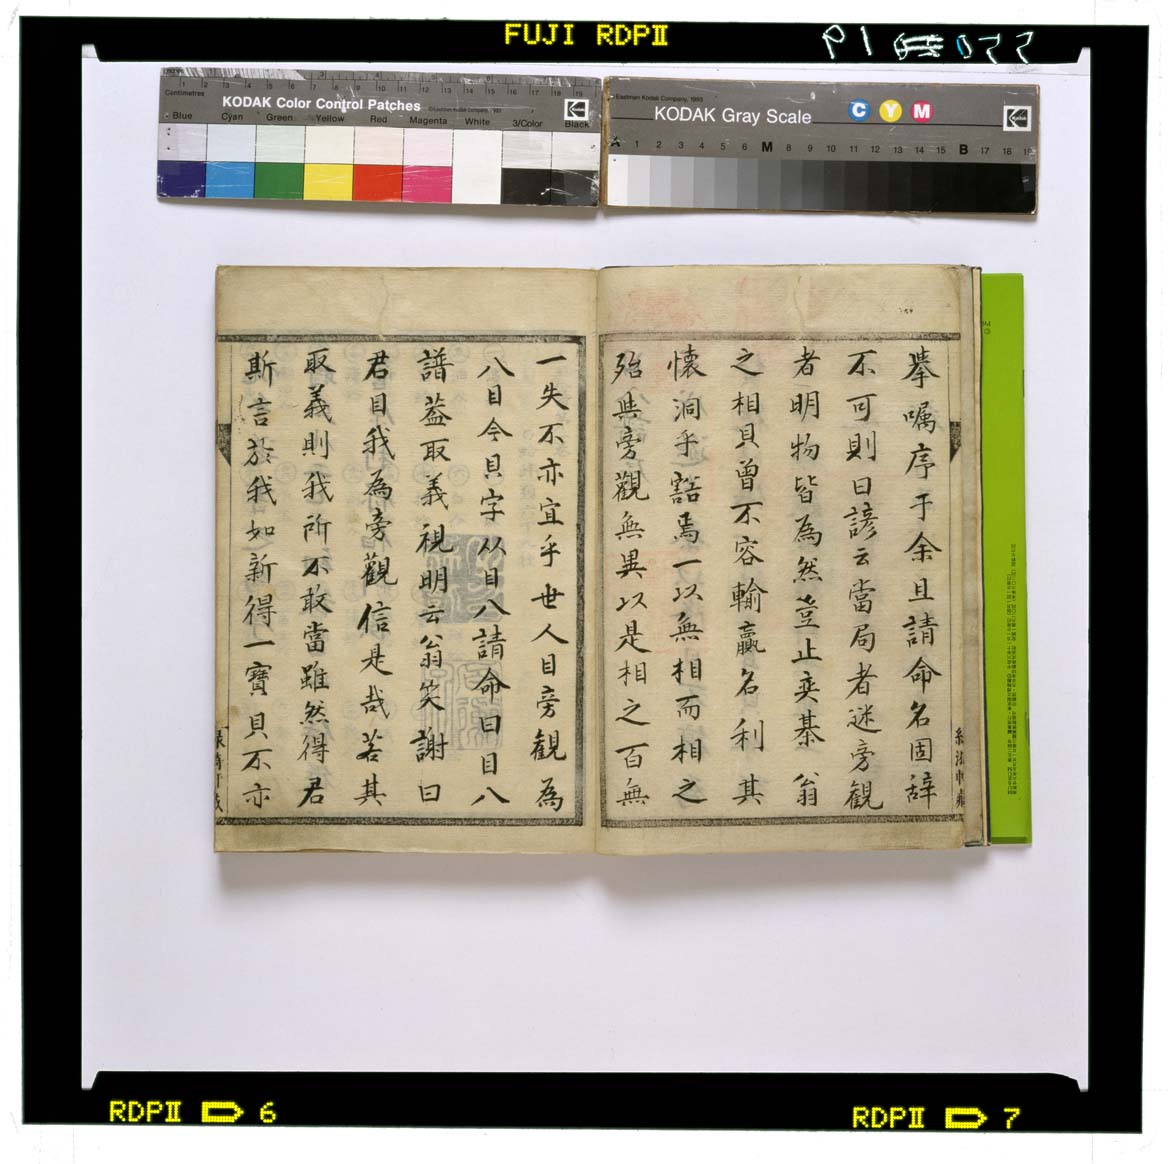 FUJI RDPⅡ
KODAK Color Control Patches
Blue Cyan Green Yellow Red Magenta White 3/Color Black
Centimetres
Eastman Kodak Company, 1993
KODAK Gray Scale
C Y M
Kodak
A 1 2 3 4 5 6 M 8 9 10 11 12 13 14 15 B 17 18 19
挙嘱序于余且請命名固辞
不可則曰諺云當局者迷旁觀
者明物皆為然豈止奕棊翁
之相貝曾不容輸贏名利其
懐洞乎豁焉一以無相而相之
殆與旁觀無異以是相之百無
一失不亦宜乎世人目旁觀為
八目今貝字从目八請命曰目八
譜葢取義視明云翁笑謝曰
君目我為旁觀信是哉若其
取義則我所不敢當雖然得君
斯言於我如新得一寳貝不亦
RDPⅡ 6
RDPⅡ 7